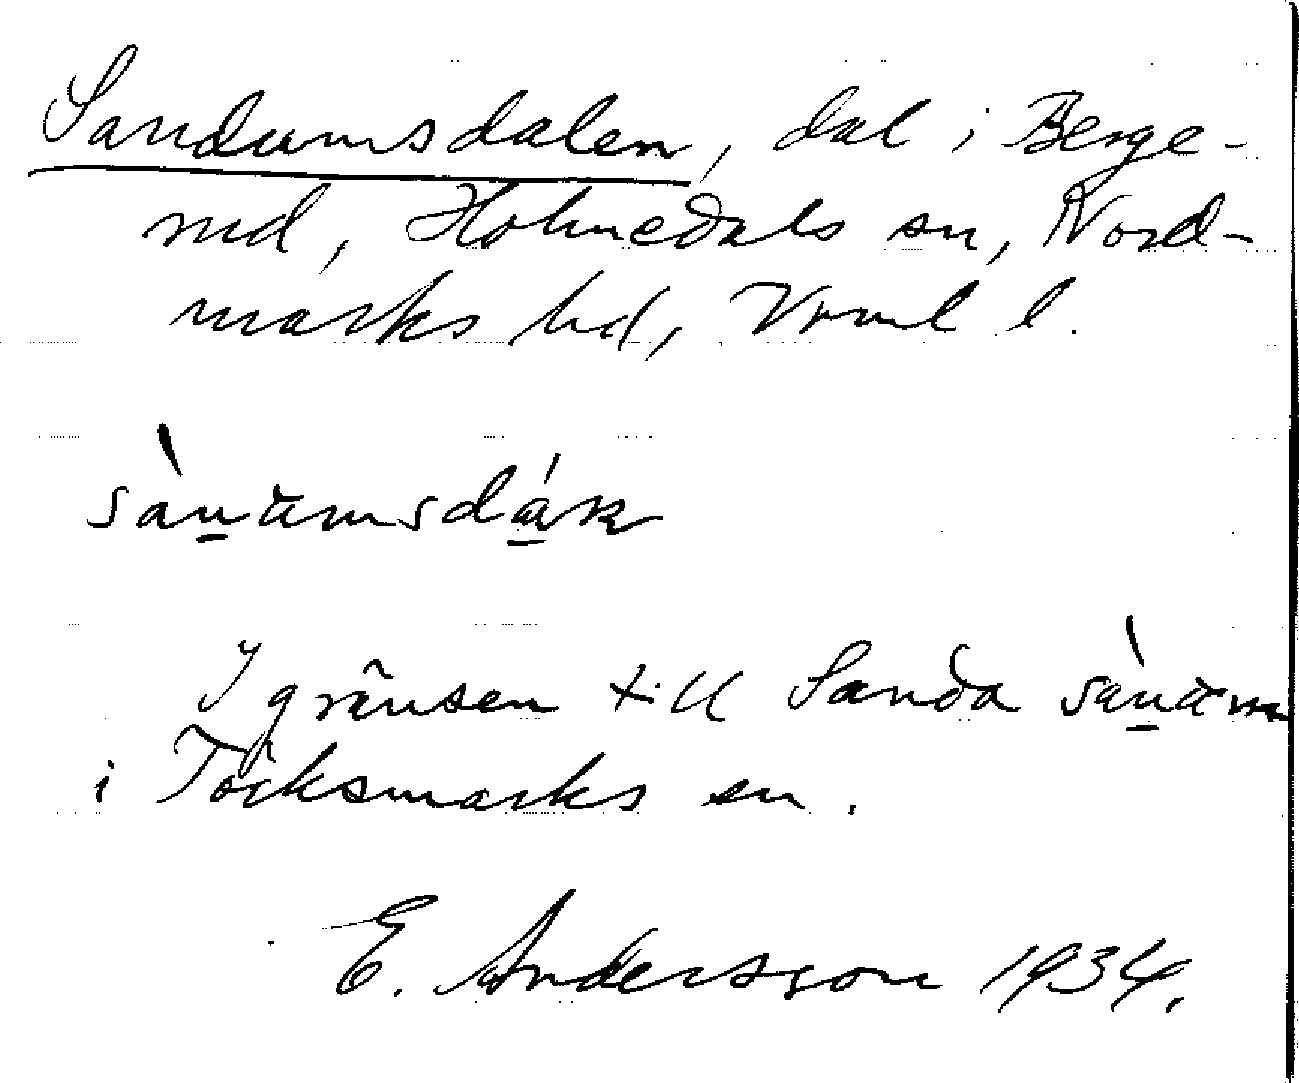 Sandumsdalen, dal i Berge-
rud, Holmedals sn, Nord-
marks hd, Vrml l.
I gränsen till Sanda
i Töcksmarks sn.
E. Andersson 1934.